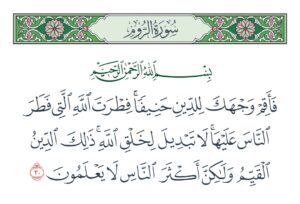 سُورَةُ الرُّومِ
بِسْمِ ٱللَّهِ ٱلرَّحْمَٰنِ ٱلرَّحِيمِ
فَأَقِمْ وَجْهَكَ لِلدِّينِ حَنِيفًا ۚ فِطْرَتَ ٱللَّهِ ٱلَّتِي فَطَرَ
ٱلنَّاسَ عَلَيْهَا ۚ لَا تَبْدِيلَ لِخَلْقِ ٱللَّهِ ۚ ذَٰلِكَ ٱلدِّينُ
ٱلْقَيِّمُ وَلَٰكِنَّ أَكْثَرَ ٱلنَّاسِ لَا يَعْلَمُونَ ٣٠